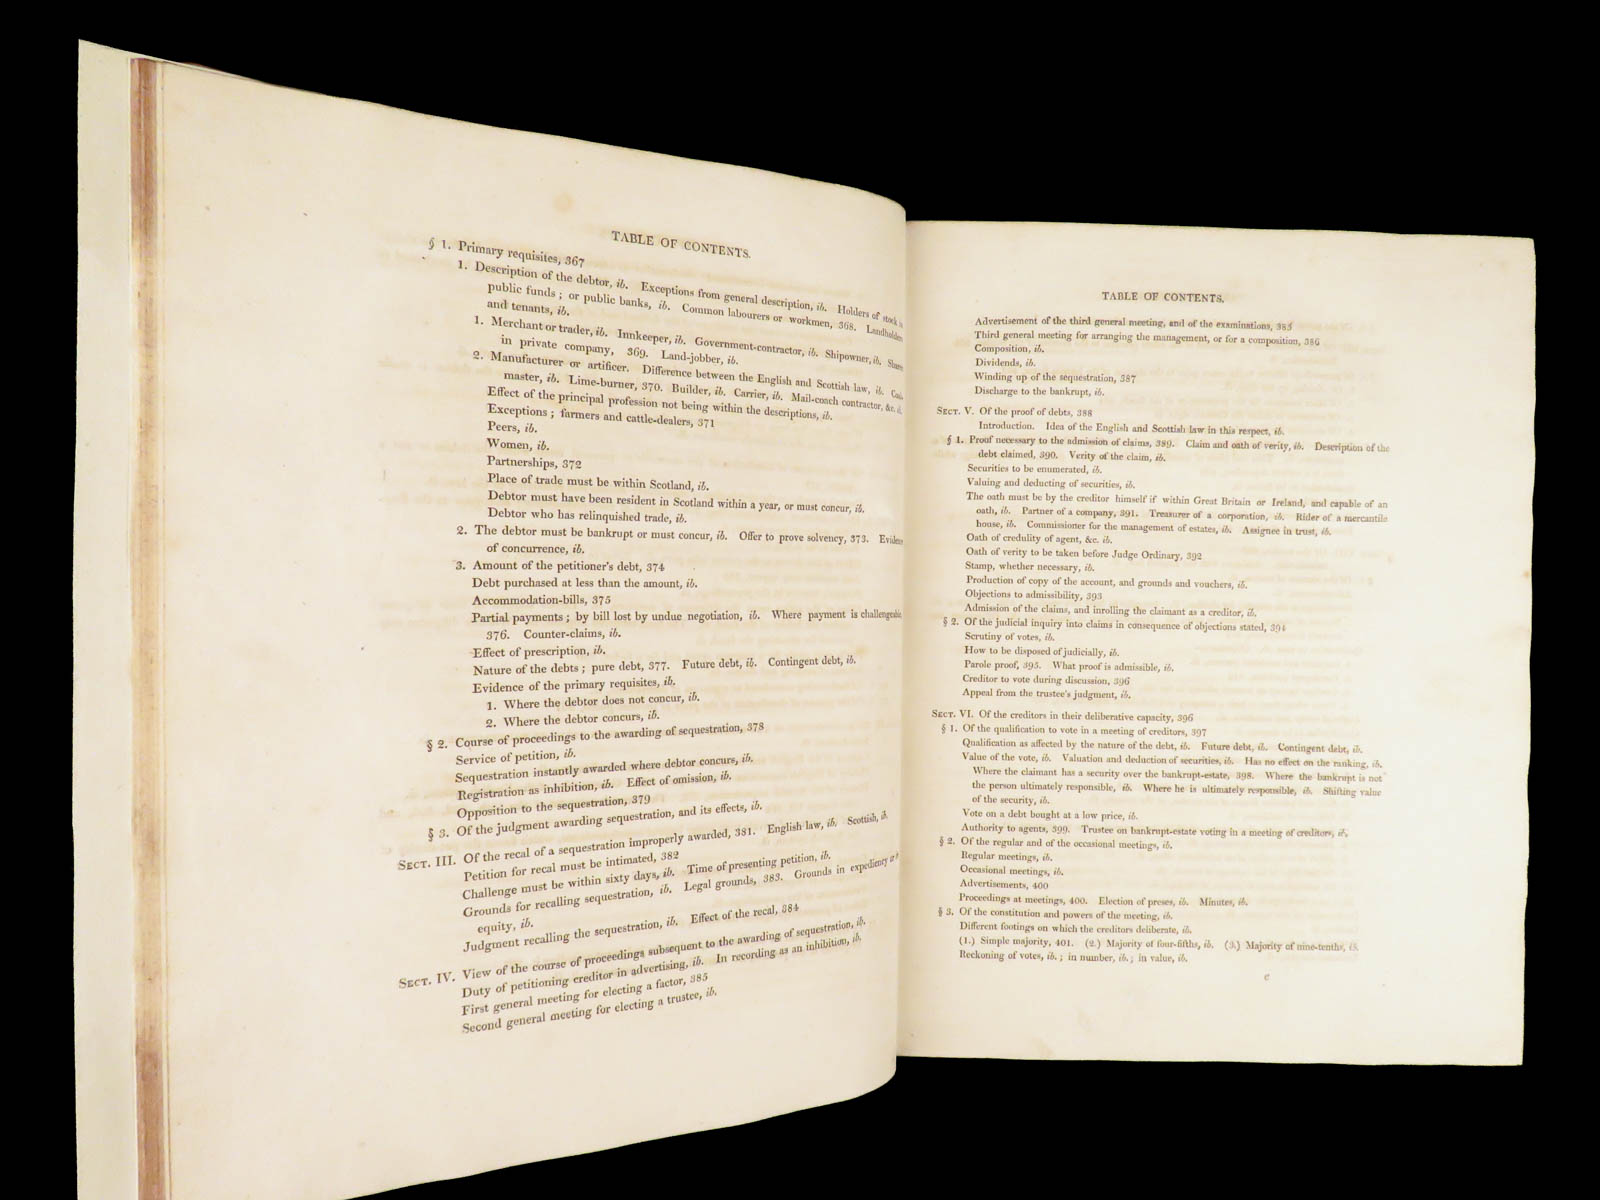 TABLE OF CONTENTS.
§ 1. Primary requisites, 367
1. Description of the debtor, ib. Exceptions from general description, ib. Holders of stock in
public funds; or public banks, ib. Common labourers or workmen, 368. Landholders
and tenants, ib.
1. Merchant or trader, ib. Innkeeper, ib. Government-contractor, ib. Shipowner, ib. Share
in private company, 369. Land-jobber, ib.
2. Manufacturer or artificer. Difference between the English and Scottish law, ib.
master, ib. Lime-burner, 370. Builder, ib. Carrier, ib. Mail-coach contractor, &c. ib.
Effect of the principal profession not being within the descriptions, ib.
Exceptions; farmers and cattle-dealers, 371
Peers, ib.
Women, ib.
Partnerships, 372
Place of trade must be within Scotland, ib.
Debtor must have been resident in Scotland within a year, or must concur, ib.
Debtor who has relinquished trade, ib.
2. The debtor must be bankrupt or must concur, ib. Offer to prove solvency, 373. Evidence
of concurrence, ib.
3. Amount of the petitioner's debt, 374
Debt purchased at less than the amount, ib.
Accommodation-bills, 375
Partial payments; by bill lost by undue negotiation, ib. Where payment is challengeable
376. Counter-claims, ib.
Effect of prescription, ib.
Nature of the debts; pure debt, 377. Future debt, ib. Contingent debt, ib.
Evidence of the primary requisites, ib.
1. Where the debtor does not concur, ib.
2. Where the debtor concurs, ib.
§ 2. Course of proceedings to the awarding of sequestration, 378
Service of petition, ib.
Sequestration instantly awarded where debtor concurs, ib.
Registration as inhibition, ib. Effect of omission, ib.
Opposition to the sequestration, 379
§ 3. Of the judgment awarding sequestration, and its effects, ib.
SECT. III. Of the recal of a sequestration improperly awarded, 381. English law, ib. Scottish, ib.
Petition for recal must be intimated, 382
Challenge must be within sixty days, ib. Time of presenting petition, ib.
Grounds for recalling sequestration, ib. Legal grounds, 383. Grounds in expediency or
equity, ib.
Judgment recalling the sequestration, ib. Effect of the recal, 384
SECT. IV. View of the course of proceedings subsequent to the awarding of sequestration, ib.
Duty of petitioning creditor in advertising, ib. In recording as an inhibition, ib.
First general meeting for electing a factor, 385
Second general meeting for electing a trustee, ib.
TABLE OF CONTENTS.
Advertisement of the third general meeting, and of the examinations, 385
Third general meeting for arranging the management, or for a composition, 386
Composition, ib.
Dividends, ib.
Winding up of the sequestration, 387
Discharge to the bankrupt, ib.
SECT. V. Of the proof of debts, 388
Introduction. Idea of the English and Scottish law in this respect, ib.
§ 1. Proof necessary to the admission of claims, 389. Claim and oath of verity, ib. Description of the
debt claimed, 390. Verity of the claim, ib.
Securities to be enumerated, ib.
Valuing and deducting of securities, ib.
The oath must be by the creditor himself if within Great Britain or Ireland, and capable of an
oath, ib. Partner of a company, 391. Treasurer of a corporation, ib. Rider of a mercantile
house, ib. Commissioner for the management of estates, ib. Assignee in trust, ib.
Oath of credulity of agent, &c. ib.
Oath of verity to be taken before Judge Ordinary, 392
Stamp, whether necessary, ib.
Production of copy of the account, and grounds and vouchers, ib.
Objections to admissibility, 393
Admission of the claims, and inrolling the claimant as a creditor, ib.
§ 2. Of the judicial inquiry into claims in consequence of objections stated, 394
Scrutiny of votes, ib.
How to be disposed of judicially, ib.
Parole proof, 395. What proof is admissible, ib.
Creditor to vote during discussion, 396
Appeal from the trustee's judgment, ib.
SECT. VI. Of the creditors in their deliberative capacity, 396
§ 1. Of the qualification to vote in a meeting of creditors, 397
Qualification as affected by the nature of the debt, ib. Future debt, ib. Contingent debt, ib.
Value of the vote, ib. Valuation and deduction of securities, ib. Has no effect on the ranking, ib.
Where the claimant has a security over the bankrupt-estate, 398. Where the bankrupt is not
the person ultimately responsible, ib. Where he is ultimately responsible, ib. Shifting value
of the security, ib.
Vote on a debt bought at a low price, ib.
Authority to agents, 399. Trustee on bankrupt-estate voting in a meeting of creditors, ib.
§ 2. Of the regular and of the occasional meetings, ib.
Regular meetings, ib.
Occasional meetings, ib.
Advertisements, 400
Proceedings at meetings, 400. Election of preses, ib. Minutes, ib.
§ 3. Of the constitution and powers of the meeting, ib.
Different footings on which the creditors deliberate, ib.
(1.) Simple majority, 401. (2.) Majority of four-fifths, ib. (3.) Majority of nine-tenths, ib.
Reckoning of votes, ib.; in number, ib.; in value, ib.
c